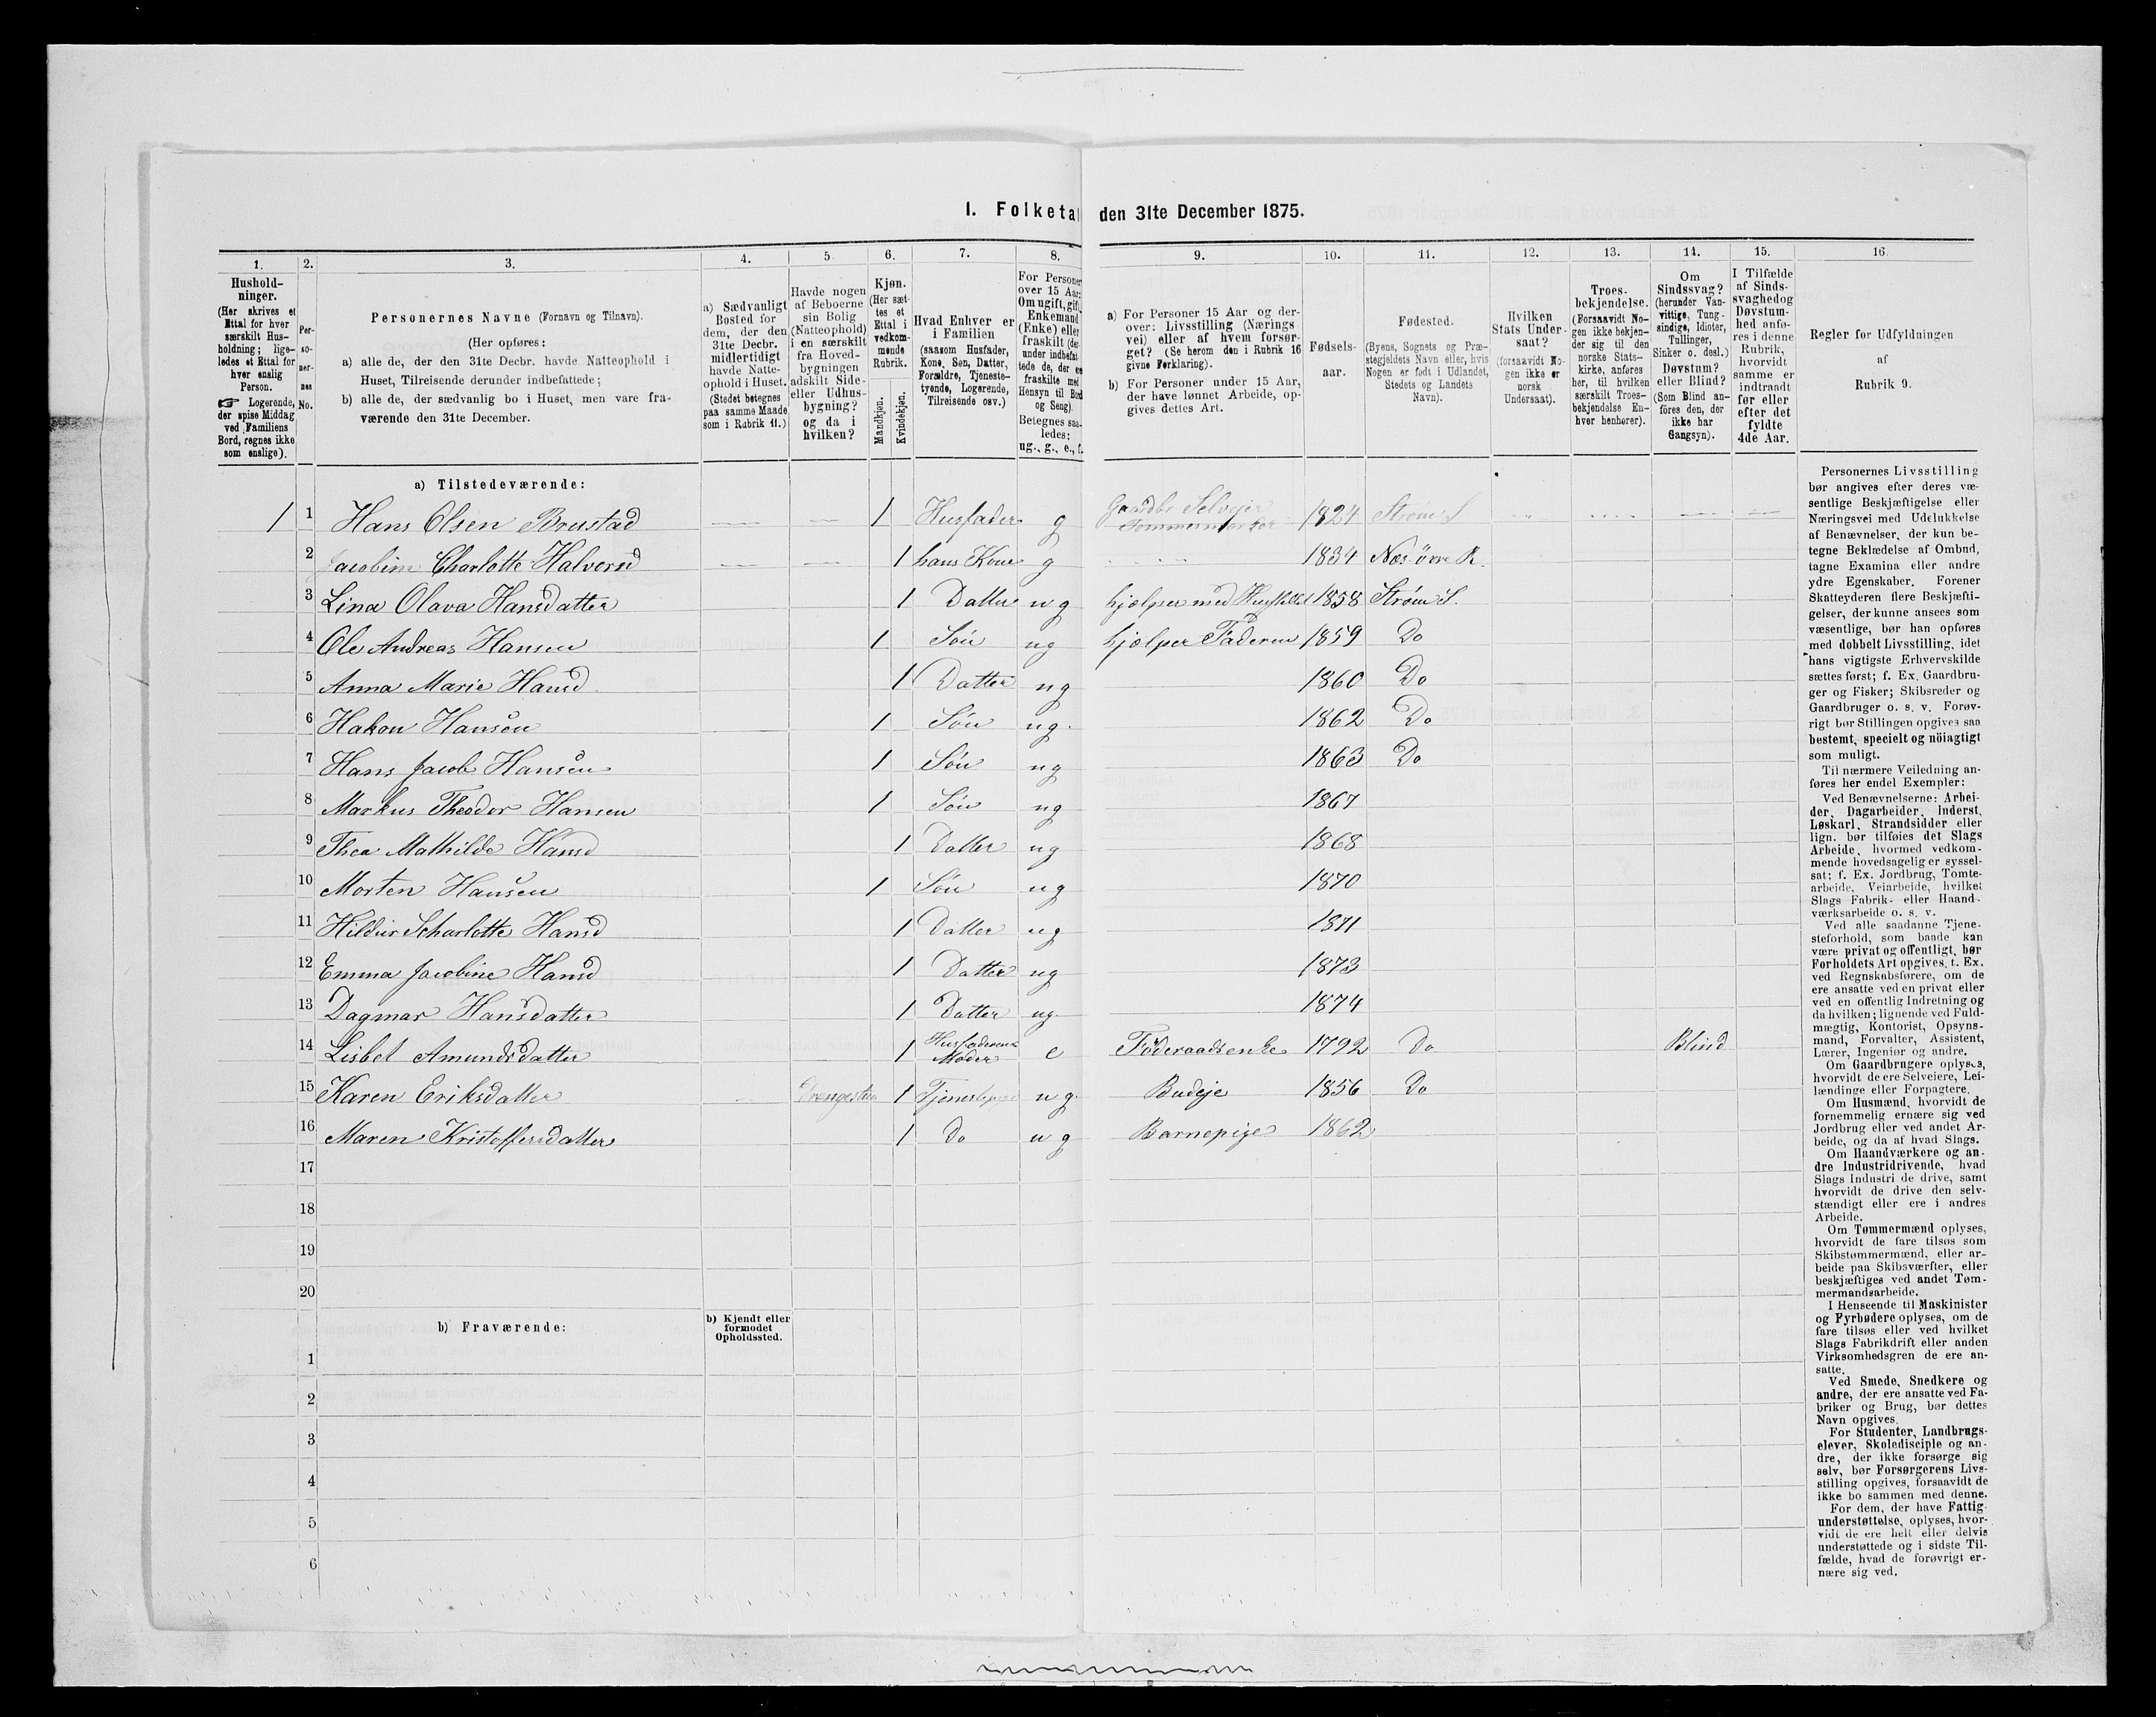 I. Folketal den 31te December 1875.
1. 2. 3. 4. 5. 6. 7. 8. 9. 10. 11. 12. 13. 14. 15. 16.
Hushold-
ninger.
(Her skrives et
Ettal for hver
særskilt Hus-
holdning; lige-
ledes et Ettal for
hver enslig
Person.
☞ Logerende,
der spise Middag
ved Familiens
Bord, regnes ikke
som enslige).
Per-
so-
ner-
nes
No.
Personernes Navne (Fornavn og Tilnavn).
(Her opføres:
a) alle de, der den 31te Decbr. havde Natteophold i
Huset, Tilreisende derunder indbefattede;
b) alle de, der sædvanlig bo i Huset, men vare fra-
værende den 31te December.
a) Sædvanligt
Bosted for
dem, der den
31te Decbr.
midlertidigt
havde Natte-
ophold i Huset.
(Stedet betegnes
paa samme Maade
som i Rubrik 11.)
Havde nogen
af Beboerne
sin Bolig
(Natteophold)
i en særskilt
fra Hoved-
bygningen
adskilt Side-
eller Udhus-
bygning?
og da i
hvilken?
Kjøn.
(Her sæt-
tes et
Ettal i
vedkom-
mende
Rubrik.
Mandkjøn.
Kvindekjøn.
Hvad Enhver er
i Familien
(saasom Husfader,
Kone, Søn, Datter,
Forældre, Tjeneste-
tyende, Logerende,
Tilreisende osv.)
For Personer
over 15 Aar:
Om ugift, gift,
Enkemand
(Enke) eller
fraskilt (der-
under indbefat-
tede de, der ere
fraskilte med
Hensyn til Bord
og Seng).
Betegnes saa-
ledes:
ug., g., e., f.
a) For Personer 15 Aar og der-
over: Livsstilling (Nærings-
vei) eller af hvem forsør-
get? (Se herom den i Rubrik 16
givne Forklaring).
b) For Personer under 15 Aar,
der have lønnet Arbeide, op-
gives dettes Art.
Fødsels-
aar.
Fødested.
(Byens, Sognets og Præ-
stegjeldets Navn eller, hvis
Nogen er født i Udlandet,
Stedets og Landets
Navn).
Hvilken
Stats Under-
saat?
(forsaavidt No-
gen ikke er
norsk
Undersaat).
Troes-
bekjendelse.
(Forsaavidt No-
gen ikke bekjen-
der sig til den
norske Stats-
kirke, anføres
her, til hvilken
særskilt Troes-
bekjendelse En-
hver henhører).
Om
Sindssvag?
(herunder Van-
vittige, Tung-
sindige, Idioter,
Tullinger,
Sinker o. desl.)
Døvstum?
eller Blind?
(Som Blind an-
føres den, der
ikke har
Gangsyn).
I Tilfælde
af Sinds-
svaghed og
Døvstum-
hed anfø-
res i denne
Rubrik,
hvorvidt
samme er
indtraadt
før eller
efter det
fyldte
4de Aar.
Regler for Udfyldningen
af
Rubrik 9.
a) Tilstedeværende:
1 1 Hans Olsen Brustad 1 Husfader g Gaardbr Selveier 1824 Strøm S
2 Jacobine Charlotte Halvorsd 1 hans Kone g 1834 Næs øvre R.
3 Lina Olava Hansdatter 1 Datter ug hjælper med 1858 Strøm S.
4 Ole Andreas Hansen 1 Søn ug hjælper Faderen 1859 Do
5 Anna Marie Hansd 1 Datter ug 1860 Do
6 Hakon Hansen 1 Søn ug. 1862 Do
7 Hans Jacob Hansen 1 Søn ug 1863 Do
8 Markus Theodor Hansen 1 Søn ug 1867
9 Thea Mathilde Hansd 1 Datter ug 1868
10 Morten Hansen 1 Søn ug 1870
11 Hildur Scharlotte Hansd 1 Datter ug 1871
12 Emma Jacobine Hansd 1 Datter ug 1873
13 Dagmar Hansdatter 1 Datter ug 1874
14 Lisbet Amundsdatter 1 Husfaderens Moder e Føderaadsenke 1792 Do Blind
15 Karen Eriksdatter Drengestu 1 Tjenestepige ug. Budeje 1856 Do
16 Maren Kristoffersdatter 1 Do ug Barnepige 1862
17
18
19
20
b) Fraværende:
b) Kjendt eller
formodet
Opholdssted.
1
2
3
4
5
6
Personernes Livsstilling
bør angives efter deres væ-
sentlige Beskjæftigelse eller
Næringsvei med Udelukkelse
af Benævnelser, der kun be-
tegne Beklædelse af Ombud,
tagne Examina eller andre
ydre Egenskaber. Forener
Skatteyderen flere Beskjæfti-
gelser, der kunne ansees som
væsentlige, bør han opføres
med dobbelt Livsstilling, idet
hans vigtigste Erhvervskilde
sættes først; f. Ex. Gaardbru-
ger og Fisker; Skibsreder og
Gaardbruger o. s. v. Forøv-
rigt bør Stillingen opgives saa
bestemt, specielt og nöiagtigt
som muligt.
Til nærmere Veiledning an-
føres her endel Exempler:
Ved Benævnelserne: Arbei-
der, Dagarbeider, Inderst,
Løskarl, Strandsidder eller
lign. bør tilføies det Slags
Arbeide, hvormed vedkom-
mende hovedsagelig er syssel-
sat; f. Ex. Jordbrug, Tomte-
arbeide, Veiarbeide, hvilket
Slags Fabrik- eller Haand-
værksarbeide o. s. v.
Ved alle saadanne Tjene-
steforhold, som baade kan
være privat og offentligt, bør
Forholdets Art opgives, t. Ex.
ved Regnskabsførere, om de
ere ansatte ved en privat eller
ved en offentlig Indretning og
da hvilken; lignende ved Fuld-
mægtig, Kontorist, Opsyns-
mand, Forvalter, Assistent,
Lærer, Ingeniør og andre.
Om Gaardbrugere oplyses,
hvorvidt de ere Selveiere, Lei-
lændinge eller Forpagtere.
Om Husmænd, hvorvidt de
fornemmelig ernære sig ved
Jordbrug eller ved andet Ar-
beide, og da af hvad Slags.
Om Haandværkere og an-
dre Industridrivende, hvad
Slags Industri de drive, samt
hvorvidt de drive den selv-
stændigt eller ere i andres
Arbeide.
Om Tømmermænd oplyses,
hvorvidt de fare tilsøs som
Skibstømmermænd, eller ar-
beide paa Skibsværfter, eller
beskjæftiges ved andet Tøm-
mermandsarbeide.
I Henseende til Maskinister
og Fyrbødere oplyses, om de
fare tilsøs eller ved hvilket
Slags Fabrikdrift eller anden
Virksomhedsgren de ere an-
satte.
Ved Smede, Snedkere og
andre, der ere ansatte ved Fa-
briker og Brug, bør dettes
Navn opgives.
For Studenter, Landbrugs-
elever, Skoledisciple og an-
dre, der ikke forsørge sig
selv, bør Forsørgerens Livs-
stilling opgives, forsaavidt de
ikke bo sammen med denne.
For dem, der have Fattig-
understøttelse, oplyses, hvor-
vidt de ere helt eller delvis
understøttede og i sidste Til-
fælde, hvad de forøvrigt er-
nære sig ved.